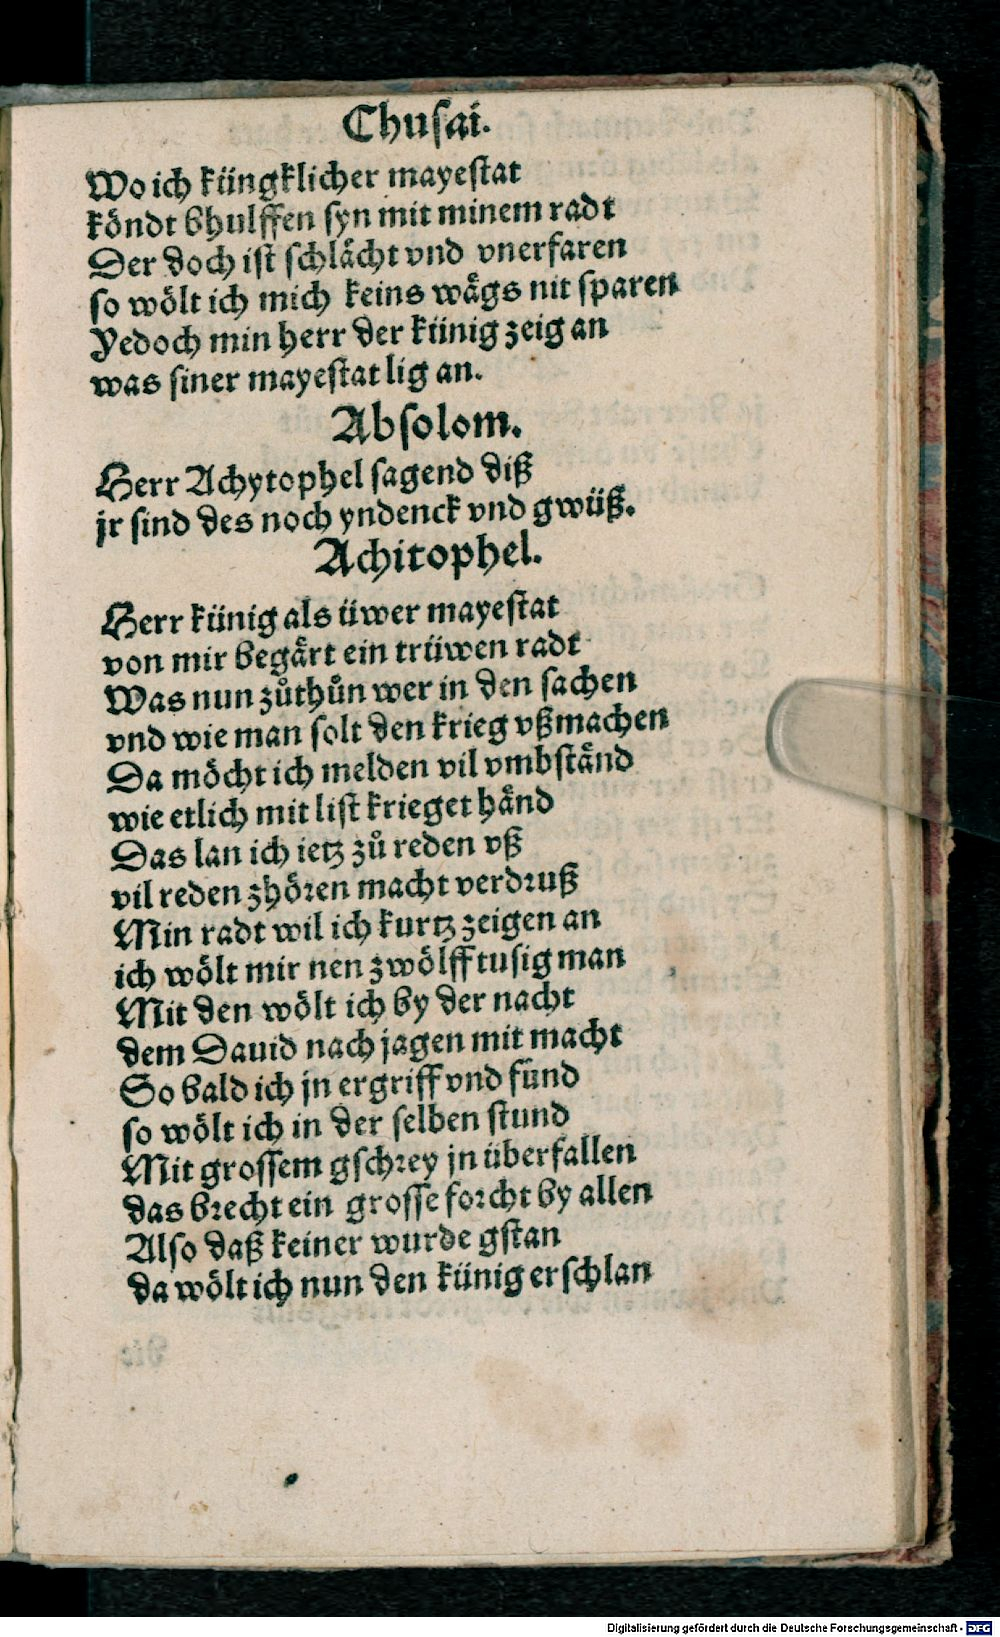 Chusai.
Wo ich küngklicher mayestat
köndt bhulffen syn mit minem radt
Der doch ist schlächt vnd vnerfaren
so wölt ich mich keins wägs nit sparen
Yedoch min herr der künig zeig an
was siner mayestat lig an.
Absolom.
Herr Achytophel sagend diß
jr sind des noch yndenck vnd gwüß.
Achitophel.
Herr künig als üwer mayestat
von mir begärt ein trüwen radt
Was nun zůthůn wer in den sachen
vnd wie man solt den krieg vßmachen
Da möcht ich melden vil vmbständ
wie etlich mit list krieget händ
Das lan ich ietz zů reden vß
vil reden zhören macht verdruß
Min radt wil ich kurtz zeigen an
ich wölt mir nen zwölfftusig man
Mit den wölt ich by der nacht
dem Dauid nach jagen mit macht
So bald ich jn ergriff vnd fünd
so wölt ich in der selben stund
Mit grossem gschrey jn überfallen
das brecht ein grosse forcht by allen
Also daß keiner wurde gstan
da wölt ich nun den künig erschlan
Digitalisierung gefördert durch die Deutsche Forschungsgemeinschaft - DFG